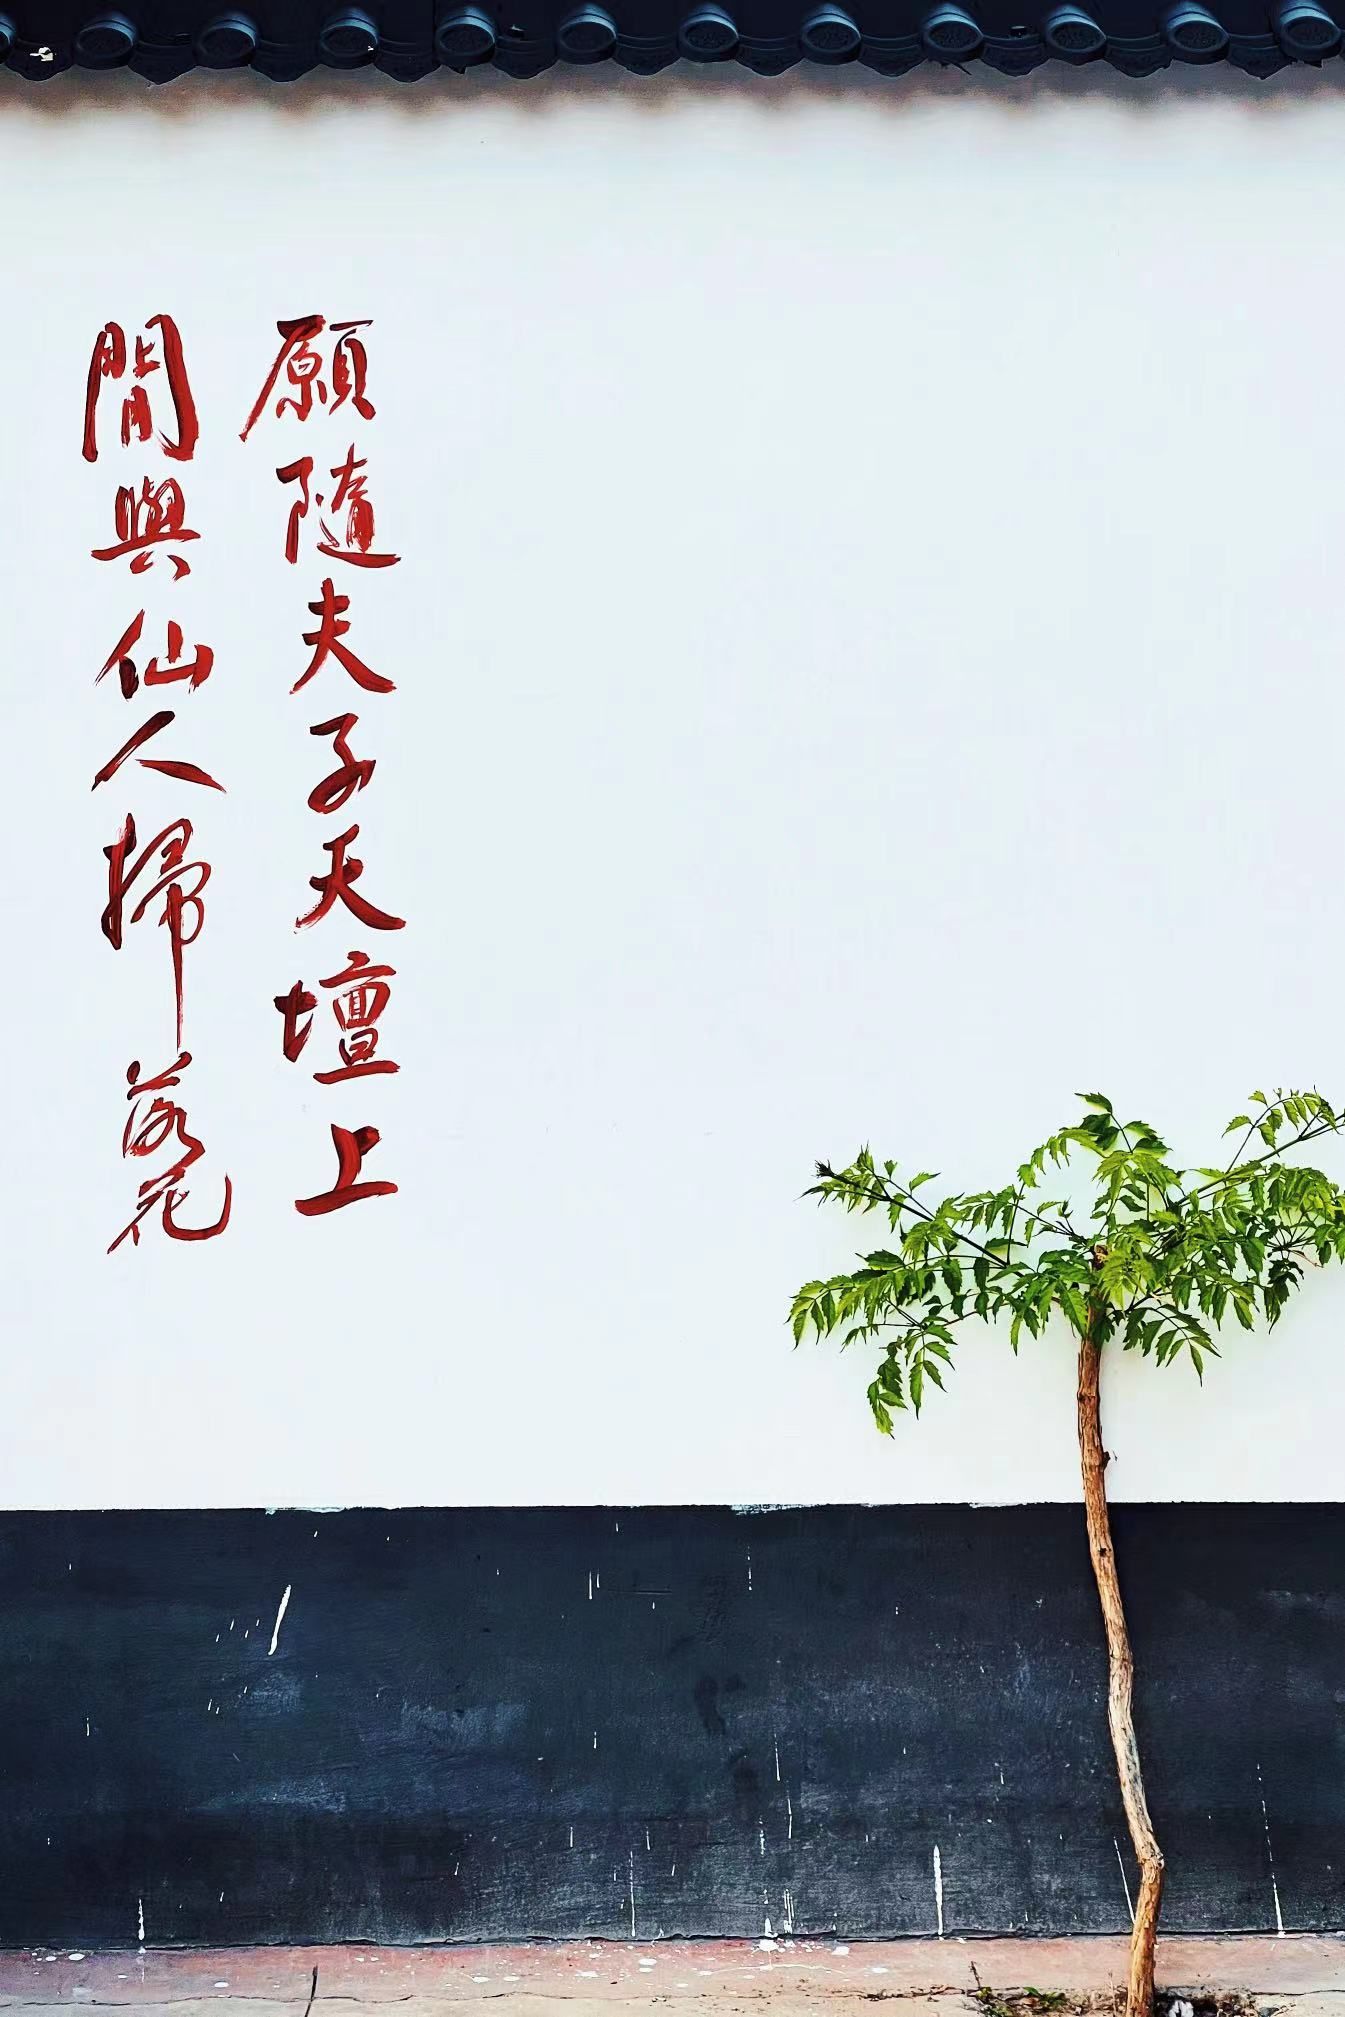 願隨夫子天壇上
閒與仙人掃落花